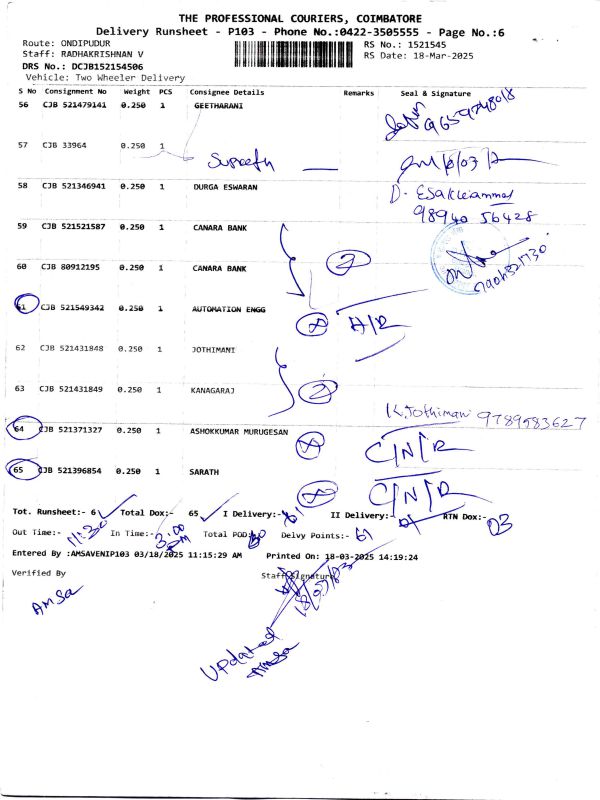 THE PROFESSIONAL COURIERS, COIMBATORE
Delivery Runsheet - P103 - Phone No.:0422-3505555 - Page No.:6
Route: ONDIPUDUR RS No.: 1521545
Staff: RADHAKRISHNAN V RS Date: 18-Mar-2025
DRS No.: DCJB152154506
Vehicle: Two Wheeler Delivery
S No Consignment No Weight PCS Consignee Details Remarks Seal & Signature
56 CJB 521479141 0.250 1 GEETHARANI 9659748018
57 CJB 33964 0.250 1
Supreeth
58 CJB 521346941 0.250 1 DURGA ESWARAN D. Esakkiammal
98940 56428
59 CJB 521521587 0.250 1 CANARA BANK
2
60 CJB 80912195 0.250 1 CANARA BANK
61 CJB 521549342 0.250 1 AUTOMATION ENGG
62 CJB 521431848 0.250 1 JOTHIMANI
63 CJB 521431849 0.250 1 KANAGARAJ 2
K. Jothimani 9789583627
64 CJB 521371327 0.250 1 ASHOKKUMAR MURUGESAN C/N/R
65 CJB 521396854 0.250 1 SARATH C/N/R
Tot. Runsheet:- 6 Total Dox:- 65 I Delivery:- 61 II Delivery:- 01 RTN Dox:- 03
Out Time:- 11:30 In Time:- 3:00 PM Total POD: Delvy Points:- 61
Entered By :AMSAVENIP103 03/18/2025 11:15:29 AM Printed On: 18-03-2025 14:19:24
Verified By Staff Signature
Amsa 18/03/
Updated
Amsa